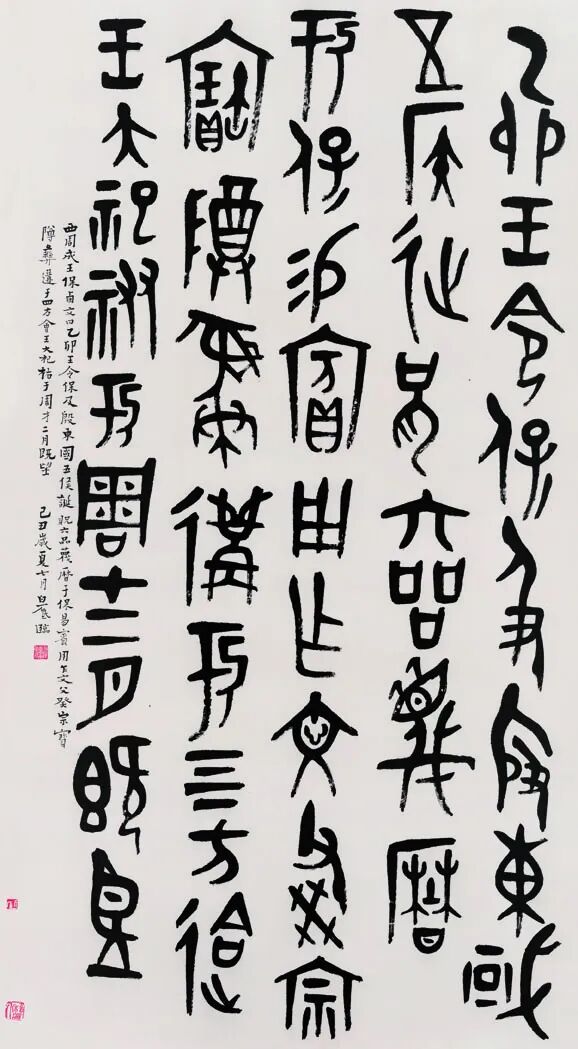 乙卯王令保及殷東或
五侯征兄六品蔑曆
于保易賓用乍文父癸宗
寶尊彝遘于四方迨
王大祀祓于周才二月既望
西周成王保卣文曰乙卯王令保及殷東國五侯誕貺六品蔑曆于保易賓用乍文父癸宗寶
障彝遘于四方會王大祀祐于周才二月既望 己丑歲夏七月白臨